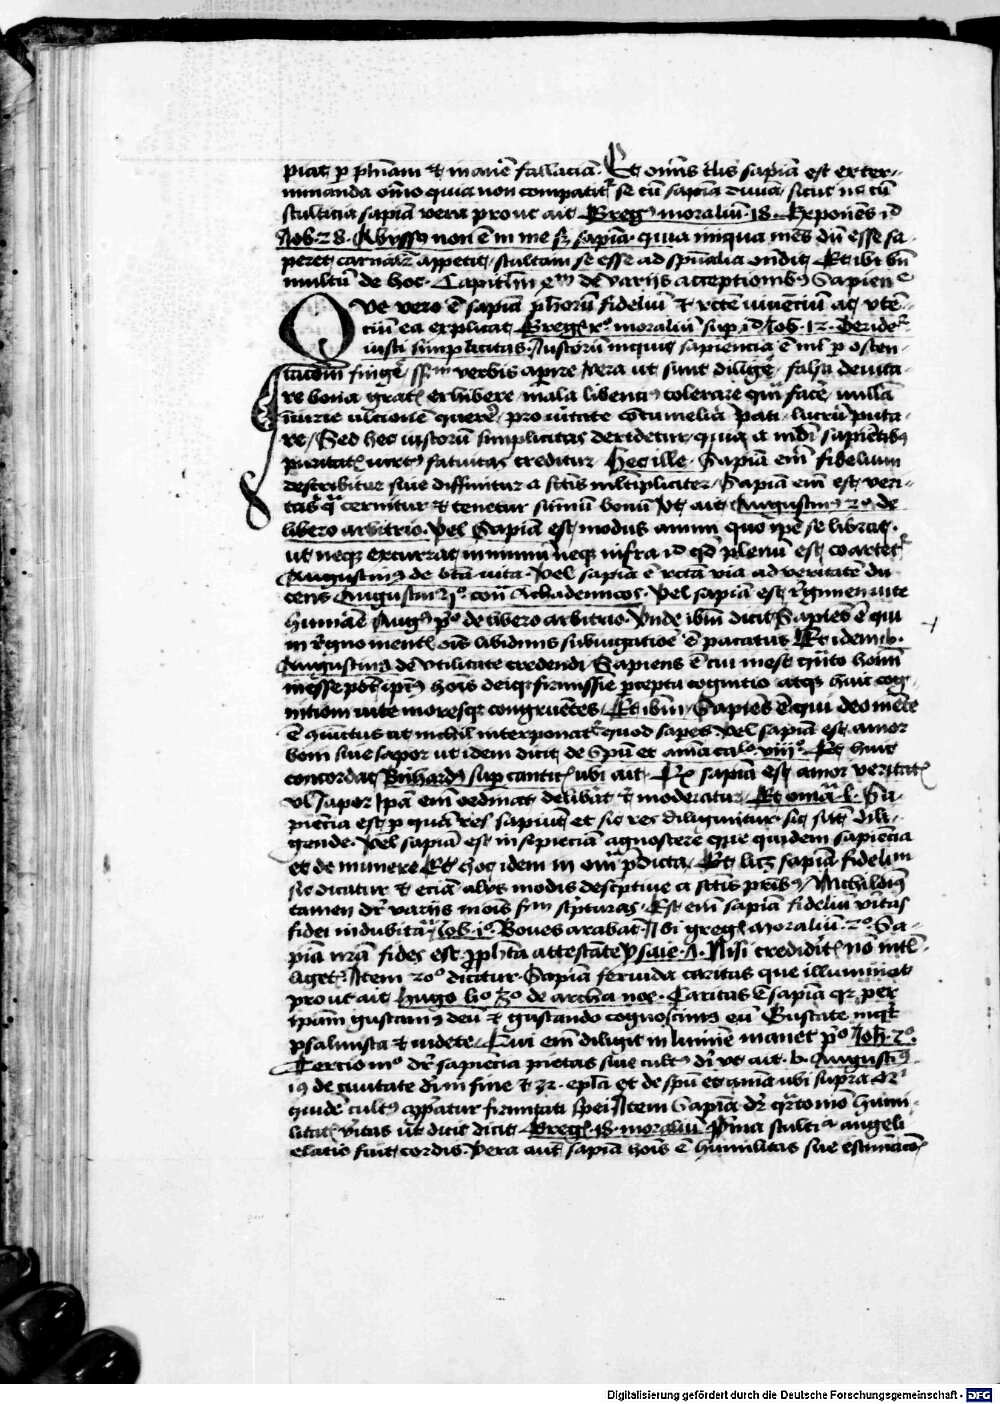 piat p ph̄iam et inanē fallaciā. Et om̄is t̄lis sapiā est exter-
minanda om̄o quia non compatit᷑ se cū sapiā diuiā, sicut nec cū
stulticia sapiā vera prout ait Gregꝰ moraliū 18. Exponēs id
Iob. 28. Abyssꝰ non ē in me sꝫ sapiā. quia iniqua mēs dū esse sa-
peret carnaliꝝ appetit, stultam se esse ad spūalia ondit, Et ibi bn̄
multū de hoc. Capitl̄m de varijs acceptionibꝰ Sapiencie
QVe vero ē sapiā ph̄orū fideliū et rc̄te viuēciū ac vtē-
ciū ea explicat Gregꝰ xº moraliū sup id Iob. 12. Deride᷑
iusti simplicitas. Iustorū inquit sapiencia ē nil p osten-
tacōem fingē, sensum verbis apire, Vera ut sunt diligē, falsa deuita-
re bona gratꝭ exhibere, mala libenciꝰ tolerare qm̄ facē, nullā
iniurie ulcionē querē, pro ūitate cōtumeliā pati, lucrū puta-
re, Sed hec iustorū simplicitas deridetur, quia a mūdi sapiētibꝰ
puritatꝭ virtꝰ fatuitas creditur, Hec ille. Sapiā em̄ fidelium
describitur siue diffinitur a sc̄tis multipliciter, Sapiā em̄ est veri-
tas qua cernitur et tenetur sūmū bonū Vt ait Augustinꝰ 2º. de
libero arbitrio. Vel Sapiā est modus animi quo ip̄e se librat,
ut neqꝫ excurrat in nimiū neqꝫ infra id qd̄ plenū est coartet᷑
Augustinꝰ de bt̄a uita. Vel sapiā ē rc̄ta via ad veritatē du-
cens Augustinꝰ 1º. con̄ Achademicos. Vel sapiā est regimen uite
humāe Augꝰ pº de libero arbitrio. Vnde ibm̄ dicit, Sapiēs ē qui
in regno mentꝭ oīs libidinis subiugatiōe ē pacatus Et idem
Augustinꝰ de vtilitate credendi, Sapiens ē cui inest quāto hoīm
inesse pōt ipiꝰ hoīs deiqꝫ firmissīe p̄cepta cognitio atqꝫ huic cog-
nitioni uite moresqꝫ congruētes, Et ibm̄, Sapiēs ē qui deo mēte
ē ita ut nichil interponat᷑ quod sapet, Vel sapiā est amor
boni siue sapor ut idem dicit de Spū et aīma caº. viijº. Et huic
concordat Bn̄hardꝰ sup canticꝭ ubi ait, sapiā est amor veritatꝭ
vl̄ sapor Ipā em̄ ordinat delibat et moderatur,
piēcia est p quā res sapiūt et sic res diliguntur sic sūt dili-
gende. Vel sapiā est insipieciā agnoscere que quidem sapiēcia
et de munere Et hoc idem in p̄dicta, Et licꝫ sapiā fideliū
sic dicatur et eciā alijs modis descptiue a sc̄tis prībꝰ, Nichilominꝰ
tamen dr̄ varijs mōis sc̄dm sc̄pturas. Est em̄ sapiā fideliū v̄itas
fidei indubitā Iob. iº. Boues arabāt, Vbi gregꝰ moraliū. 2º. Sa-
piā nr̄ā fides est, pph̄ta attestāte ysaie. Nisi credidīt, nō intl̄-
liget᷑. Item 2º dicitur Sapiā feruida caritas que illuminat
prout ait Hugo liº 3º de archa noe. Caritas ē sapiā qꝛ per
ipam gustamꝰ deū et gustando cognoscimꝰ eū Gustate inqt
psalmista et uidete, Qui em̄ diligit in lumīe manet pº Ioh. 2º.
Tercio mº dr̄ sapiēcia pietas siue cultꝰ dī vt ait. b. Augustinꝰ
de ciuitate dī in fine et 32. epl̄a et de spū et aīma ubi supra
quidē cultꝰ app̄atur firmitati spei Item Sapiā dr̄ quarto mō humi-
litatꝭ v̄itas ut dicit dicit, Gregꝰ. 18. moraliū p̄ma stultiā angeli
elatio fuit cordis. Vera aut̄ sapiā hoīs ē humilitas sue estimacōꝭ
Digitalisierung gefördert durch die Deutsche Forschungsgemeinschaft - DFG